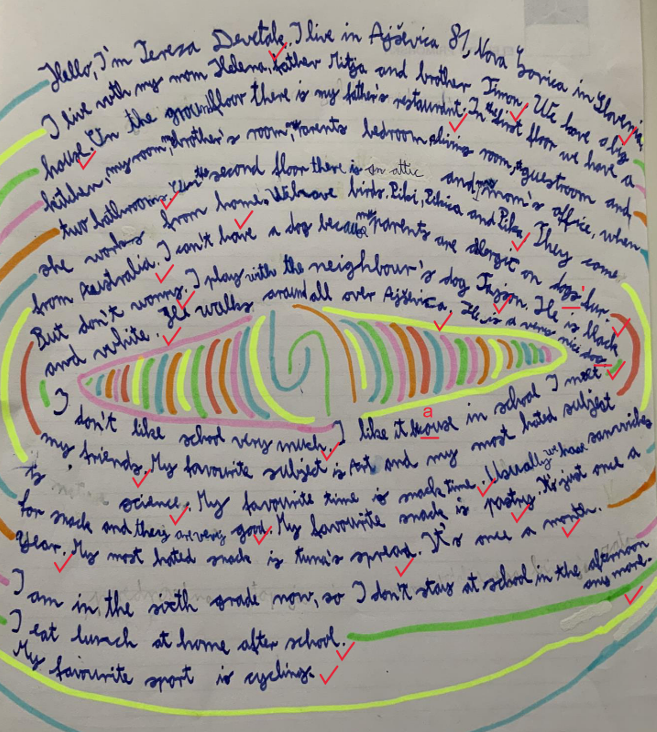 Hello, I'm Tereza Devetak. I live in Ajševica 81, Nova Gorica in Slovenia.
I live with my mom Helena, father Mitja and brother Timon. We have a big
house. In the groundfloor there is my father's restaurant. In the first floor we have a
kitchen, my room, my brother's room, my parents bedroom, a living room, a guestroom and
two bathrooms. In the second floor there is an attic and my mom's office, when
she works from home. We have birds. Pibi, Pibica and Piko. They come
from Australia. I can't have a dog because my parents are alergic on dogs' fur.
But don't worry. I play with the neighbour's dog. He is black
and white. He walks around all over Ajševica. He is a very nice dog.
I don't like school very much. I like it because in school I meet
a
my friends. My favourite subject is Art and my most hated subject
is science. My favourite time is snack time. Usually we have sandwiches
for snack and they are very good. My favourite snack is pastry. It's just once a
Year. My most hated snack is tuna's spread. It's once a month.
I am in the sixth grade now, so I don't stay at school in the afternoon
any more.
I eat lunch at home after school.
My favourite sport is cycling.